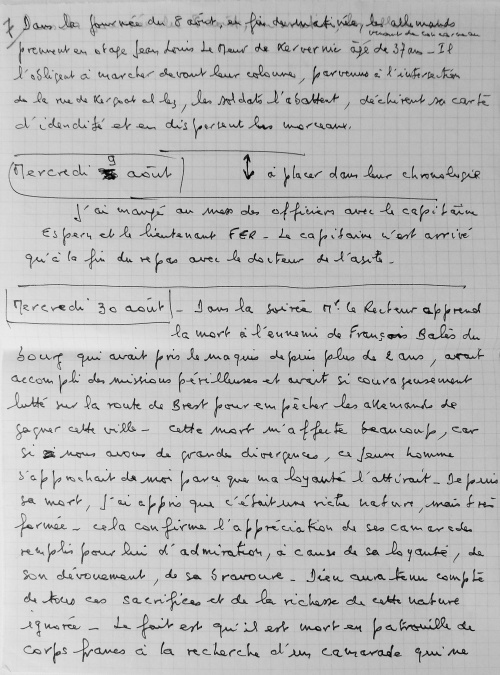 7 Dans la journée du 8 août, en fin de matinée, les allemands
venant de Concarneau
prennent en otage Jean Louis Le Meur de Kervernic âgé de 37 ans - Il
l'obligent à marcher devant leur colonne, parvenus à l'intersection
de la rue de Kergoat al lez, les soldats l'abattent, déchirent sa carte
d'identité et en dispersent les morceaux.
Mercredi 9 août ↕ à placer dans leur chronologie
J'ai mangé au mess des officiers avec le capitaine
Espern et le lieutenant FER - Le capitaine n'est arrivé
qu'à la fin du repas avec le docteur de l'asile -
Mercredi 30 août - Dans la soirée Mr le Recteur apprend
la mort à l'ennemi de François Balès du
bourg qui avait pris le maquis depuis plus de 2 ans, avait
accompli des missions périlleuses et avait si courageusement
lutté sur la route de Brest pour empêcher les allemands de
gagner cette ville - cette mort m'affecte beaucoup, car
si nous avons de grandes divergences, ce jeune homme
s'approchait de moi parce que ma loyauté l'attirait - Depuis
sa mort, j'ai appris que c'était une riche nature, mais très
fermée - cela confirme l'appréciation de ses camarades
remplis pour lui d'admiration, à cause de sa loyauté, de
son dévouement, de sa bravoure - Dieu aura tenu compte
de tous ces sacrifices et de la richesse de cette nature
ignorée - Le fait est qu'il est mort en patrouille de
corps francs à la recherche d'un camarade qui ne